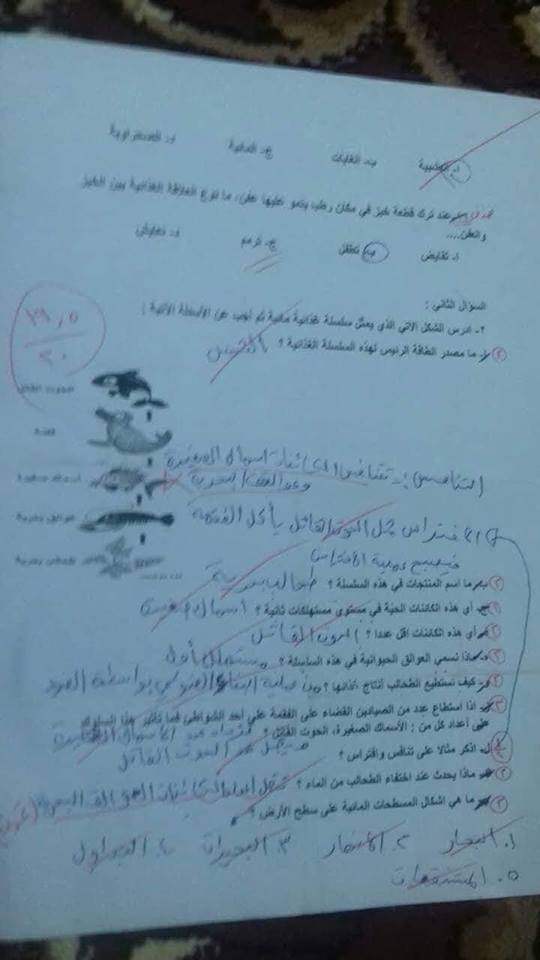 أ- العشبية ب- الغابات ج- المائية د- الصحراوية
عند ترك قطعة خبز في مكان رطب ينمو عليها عفن، ما نوع العلاقة الغذائية بين الخبز
والعفن....
أ- تقايض ب- تطفل ج- ترمم د- تعايش
السؤال الثاني :
٢- ادرس الشكل الاتي الذي يمثل سلسلة غذائية مائية ثم أجب عن الأسئلة الاتية :
ما مصدر الطاقة الرئيس لهذه السلسلة الغذائية ؟ الشمس
٢٩,٥
٣٠
الحوت القاتل
فقمة
أسماك صغيرة
عوالق بحرية
طحالب بحرية
التنافس :- تتنافس الكائنات أسماك الصغيرة
الافتراس مثل الحوت القاتل يأكل الفقمة
عملية الافتراس
ما اسم المنتجات في هذه السلسلة ؟ طحالب بحرية
أي هذه الكائنات الحية في مستوى مستهلكات ثانية ؟ أسماك صغيرة
أي هذه الكائنات اقل عددا ؟ الحوت القاتل
ماذا نسمي العوالق الحيوانية في هذه السلسلة ؟ مستهلك أول
كيف تستطيع الطحالب أنتاج غذائها ؟ عملية البناء الضوئي بواسطة الضوء
اذا استطاع عدد من الصيادين القضاء على الفقمة على أحد الشواطئ فما تأثير هذا السلوك
على أعداد كل من : الأسماك الصغيرة، الحوت القاتل ؟
يقل عدد الحوت القاتل
اذكر مثالا على تنافس وافتراس ؟
ماذا يحدث عند اختفاء الطحالب من الماء ؟ تقل أعداد الكائنات
ما هي اشكال المسطحات المائية على سطح الأرض ؟
١. البحار ٢. الأنهار ٣. البحيرات ٤. الجداول
٥. المستنقعات